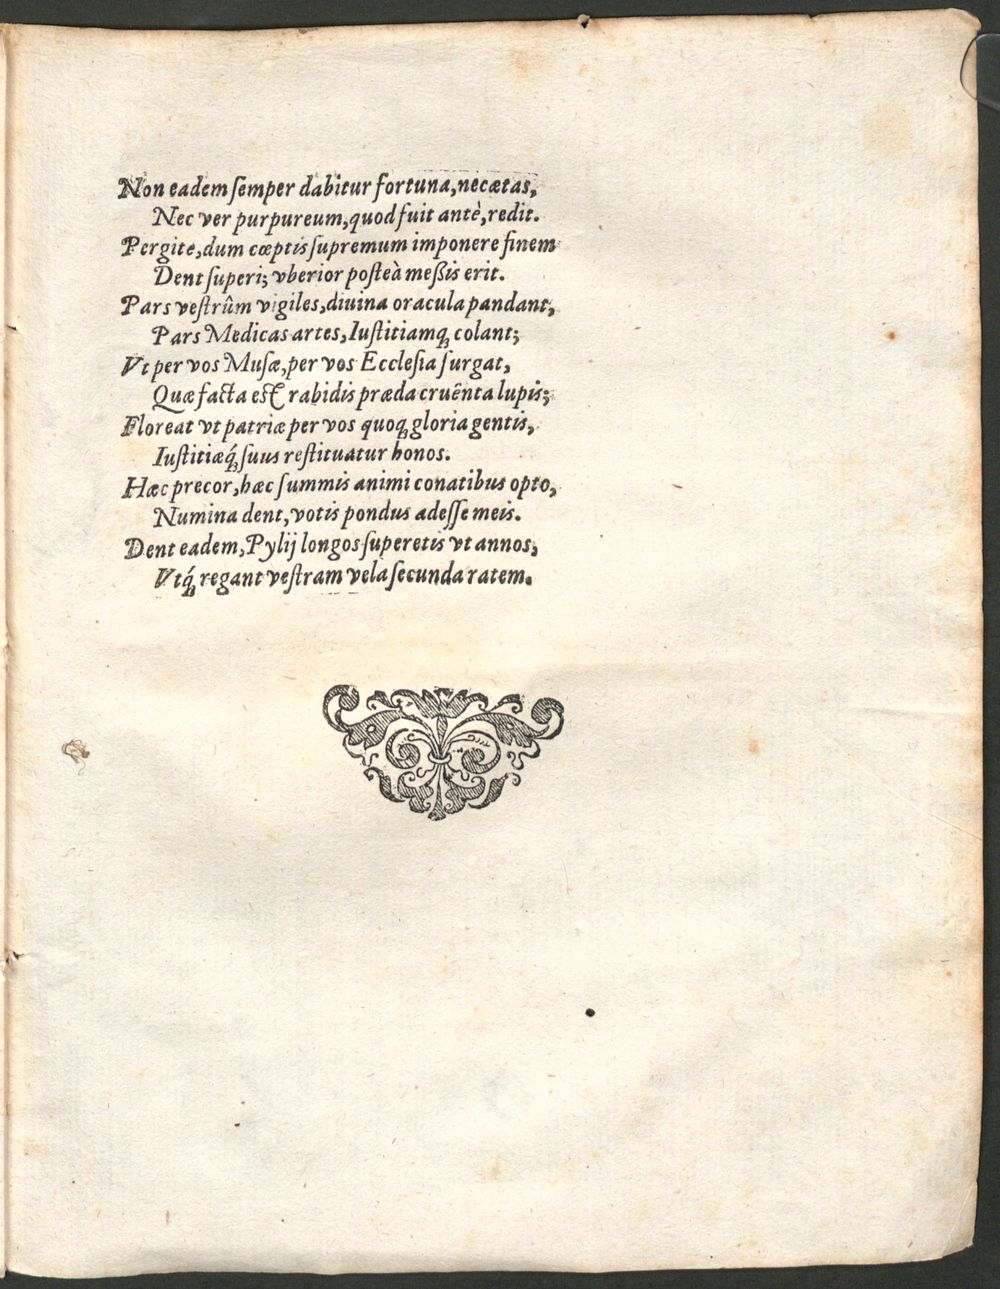 Non eadem ſemper dabitur fortuna, nec ætas,
Nec ver purpureum, quod fuit antè, redit.
Pergite, dum cœptis ſupremum imponere finem
Dent ſuperi; vberior poſteà meßis erit.
Pars veſtrûm vigiles, diuina oracula pandant,
Pars Medicas artes, Iuſtitiamq́ colant;
Vt per vos Muſæ, per vos Eccleſia ſurgat,
Quæ facta eſt rabidis præda cruënta lupis;
Floreat vt patriæ per vos quoq́ gloria gentis,
Iuſtitiæq́ ſuus reſtituatur honos.
Hæc precor, hæc ſummis animi conatibus opto,
Numina dent, votis pondus adeſſe meis.
Dent eadem, Pylij longos ſuperetis vt annos,
Vtq́ regant veſtram vela ſecunda ratem.